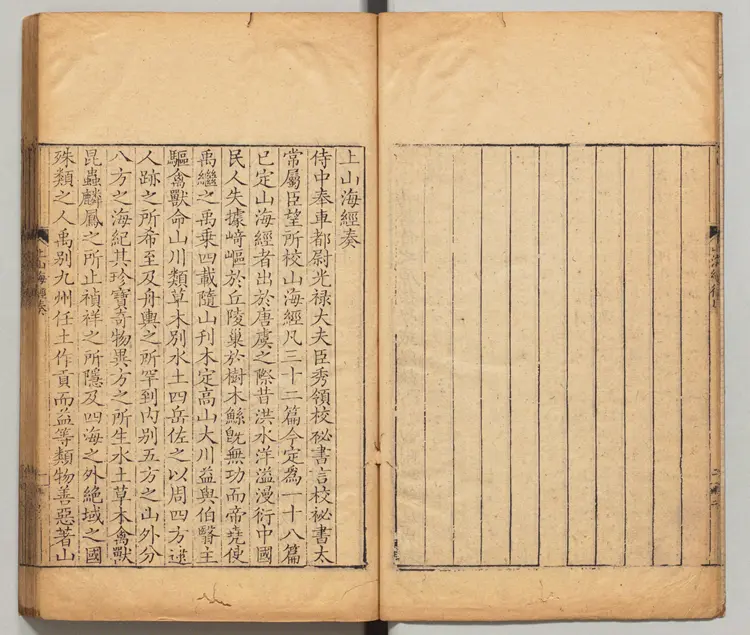 上山海經奏
侍中奉車都尉光祿大夫臣秀領校祕書言校祕書太
常屬臣望所校山海經凡三十二篇今定爲一十八篇
已定山海經者出於唐虞之際昔洪水洋溢漫衍中國
民人失據崎嶇於丘陵巢於樹木鯀旣無功而帝堯使
禹繼之禹乗四載隨山刋木定高山大川益與伯翳主
驅禽獸命山川類草木別水土四岳佐之以周四方逮
人跡之所希至及舟輿之所罕到内别五方之山外分
八方之海紀其珍寶奇物異方之所生水土草木禽獸
昆蟲麟鳳之所止禎祥之所隱及四海之外絶域之國
殊類之人禹别九州任土作貢而益等類物善惡著山
上山海經奏